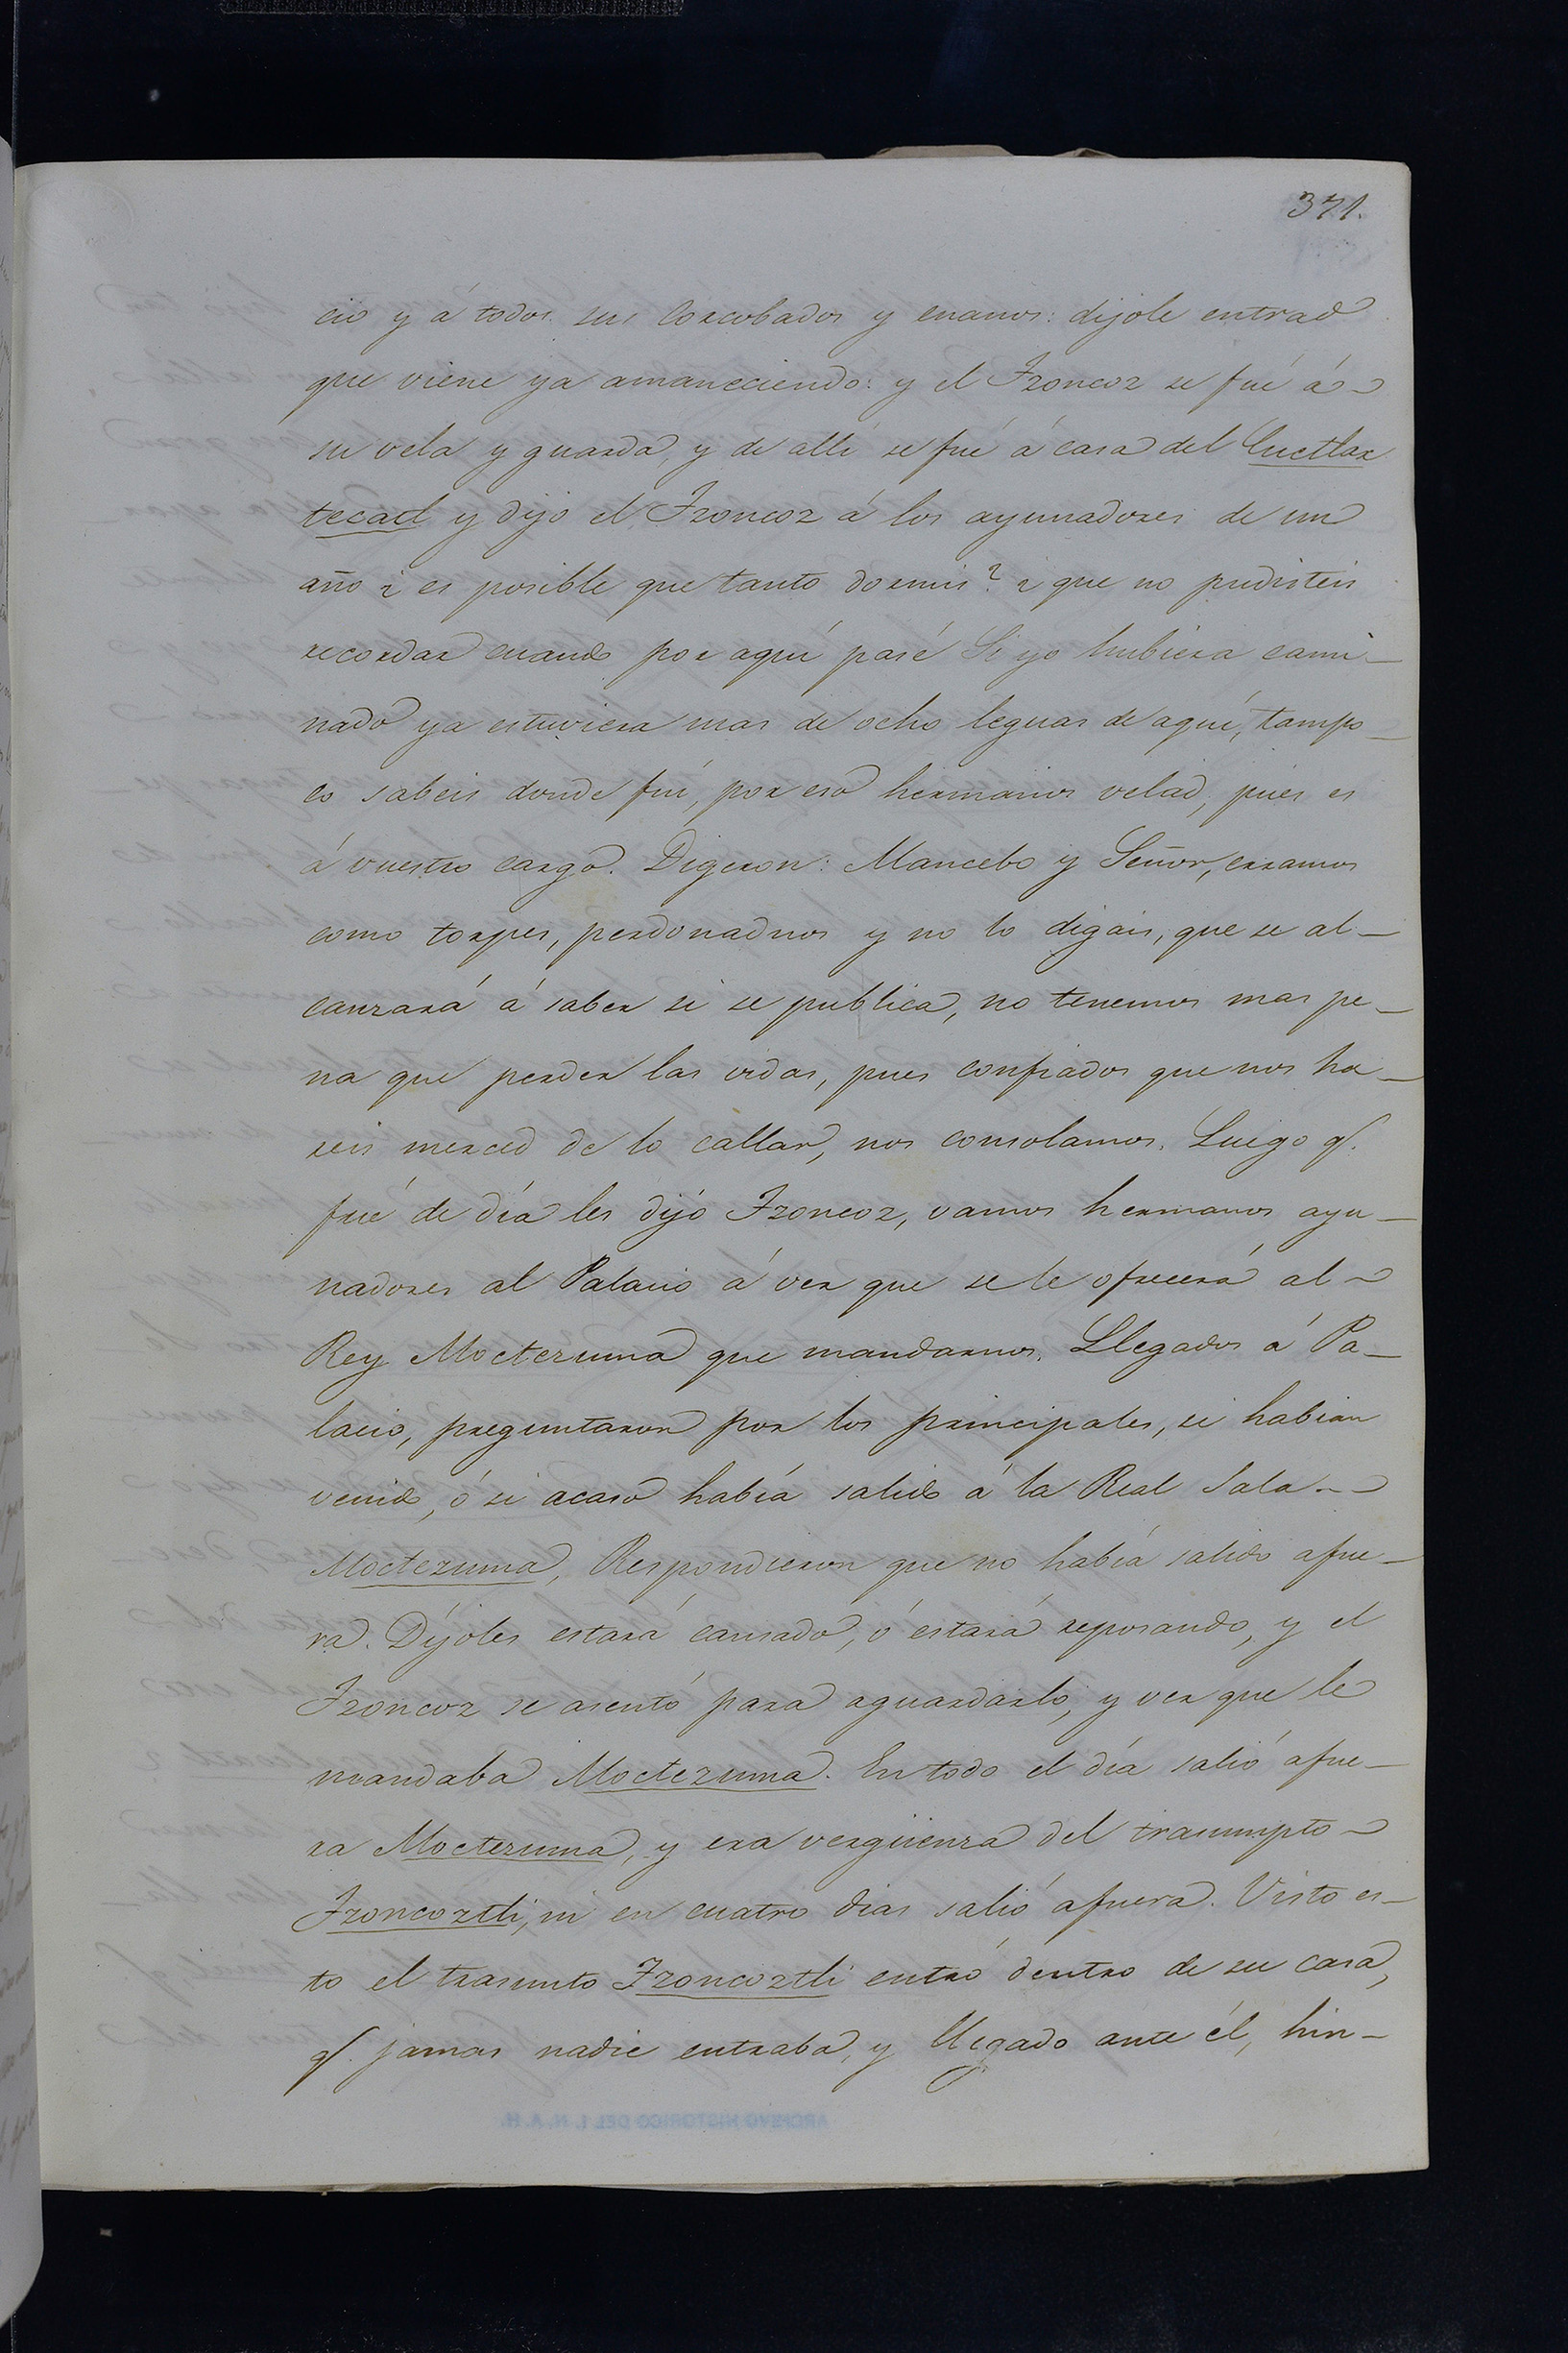 371.
cio y á todos sus Corcobados y enanos: dijole entrad
que viene ya amaneciendo: y el Tzoncoz se fué á
su vela y guarda, y de alli se fué á casa del Cuetlax
tecatl y dijo el Tzoncoz á los ayunadores de un
año ¿ es posible que tanto dormis? ¿ que no pudisteis
recordar cuando por aquí pasé Si yo hubiera cami-
nado ya estuviera mas de ocho leguas de aquí, tampo-
co sabeis donde fuí, por eso hermanos velad, pues es
á vuestro cargo. Digeron: Mancebo y Señor, erramos
como torpes, perdonadnos y no lo digais, que se al-
canzará á saber si se publica, no tenemos mas pe-
na que perder las vidas, pues confiados que nos ha-
reis merced de lo callar, nos consolamos. Luego q.
fué de día les dijó Tzoncoz, vamos hermanos ayu-
nadores al Palacio á ver que se le ofrecerá al
Rey Moctezuma que mandarnos. Llegados á Pa-
lacio, preguntaron por los principales, si habian
venido, ó si acaso había salido á la Real Sala
Moctezuma, Respondieron que no había salido afue-
ra. Díjoles estará cansado, ó estará reposando, y el
Tzoncoz se asentó para aguardarlo, y ver que le
mandaba Moctezuma. En todo el día salió afue-
ra Moctezuma, y era vergüenza del trasumpto
Tzoncoztli, ni en cuatro dias salió afuera. Visto es-
to el trasunto Tzoncoztli entró dentro de su casa,
q. jamas nadie entraba, y llegado ante él, hin-
ARCHIVO HISTORICO DEL I. N. A. H.